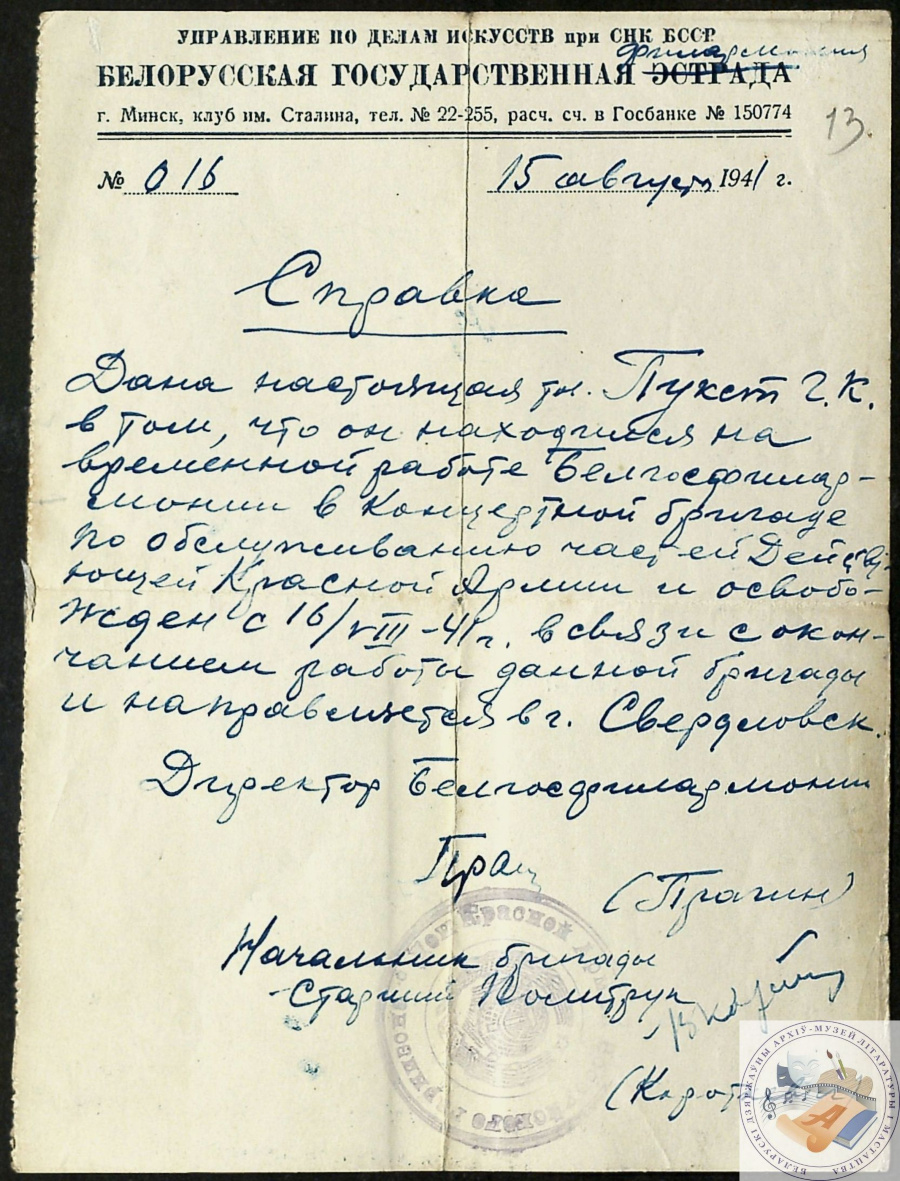 УПРАВЛЕНИЕ ПО ДЕЛАМ ИСКУССТВ при СНК БССР
филармония
БЕЛОРУССКАЯ ГОСУДАРСТВЕННАЯ ЭСТРАДА
г. Минск, клуб им. Сталина, тел. № 22-255, расч. сч. в Госбанке № 150774
13.
№ 016 15 августа 1941 г.
Справка
Дана настоящая тп. Пукст Г. К.
в том, что он находился на
временной работе Белгосфилар-
монии в Концертной бригаде
по обслуживанию частей Действу-
ющей Красной Армии и освобо-
жден с 16/VIII-41 г. в связи с окон-
чанием работы данной бригады
и направляется в г. Свердловск.
Директор Белгосфилармонии
(Прагин)
Начальник бригады
Старший Политрук
БЕЛАРУСКІ ДЗЯРЖАЎНЫ АРХІЎ-МУЗЕЙ ЛІТАРАТУРЫ І МАСТАЦТВА